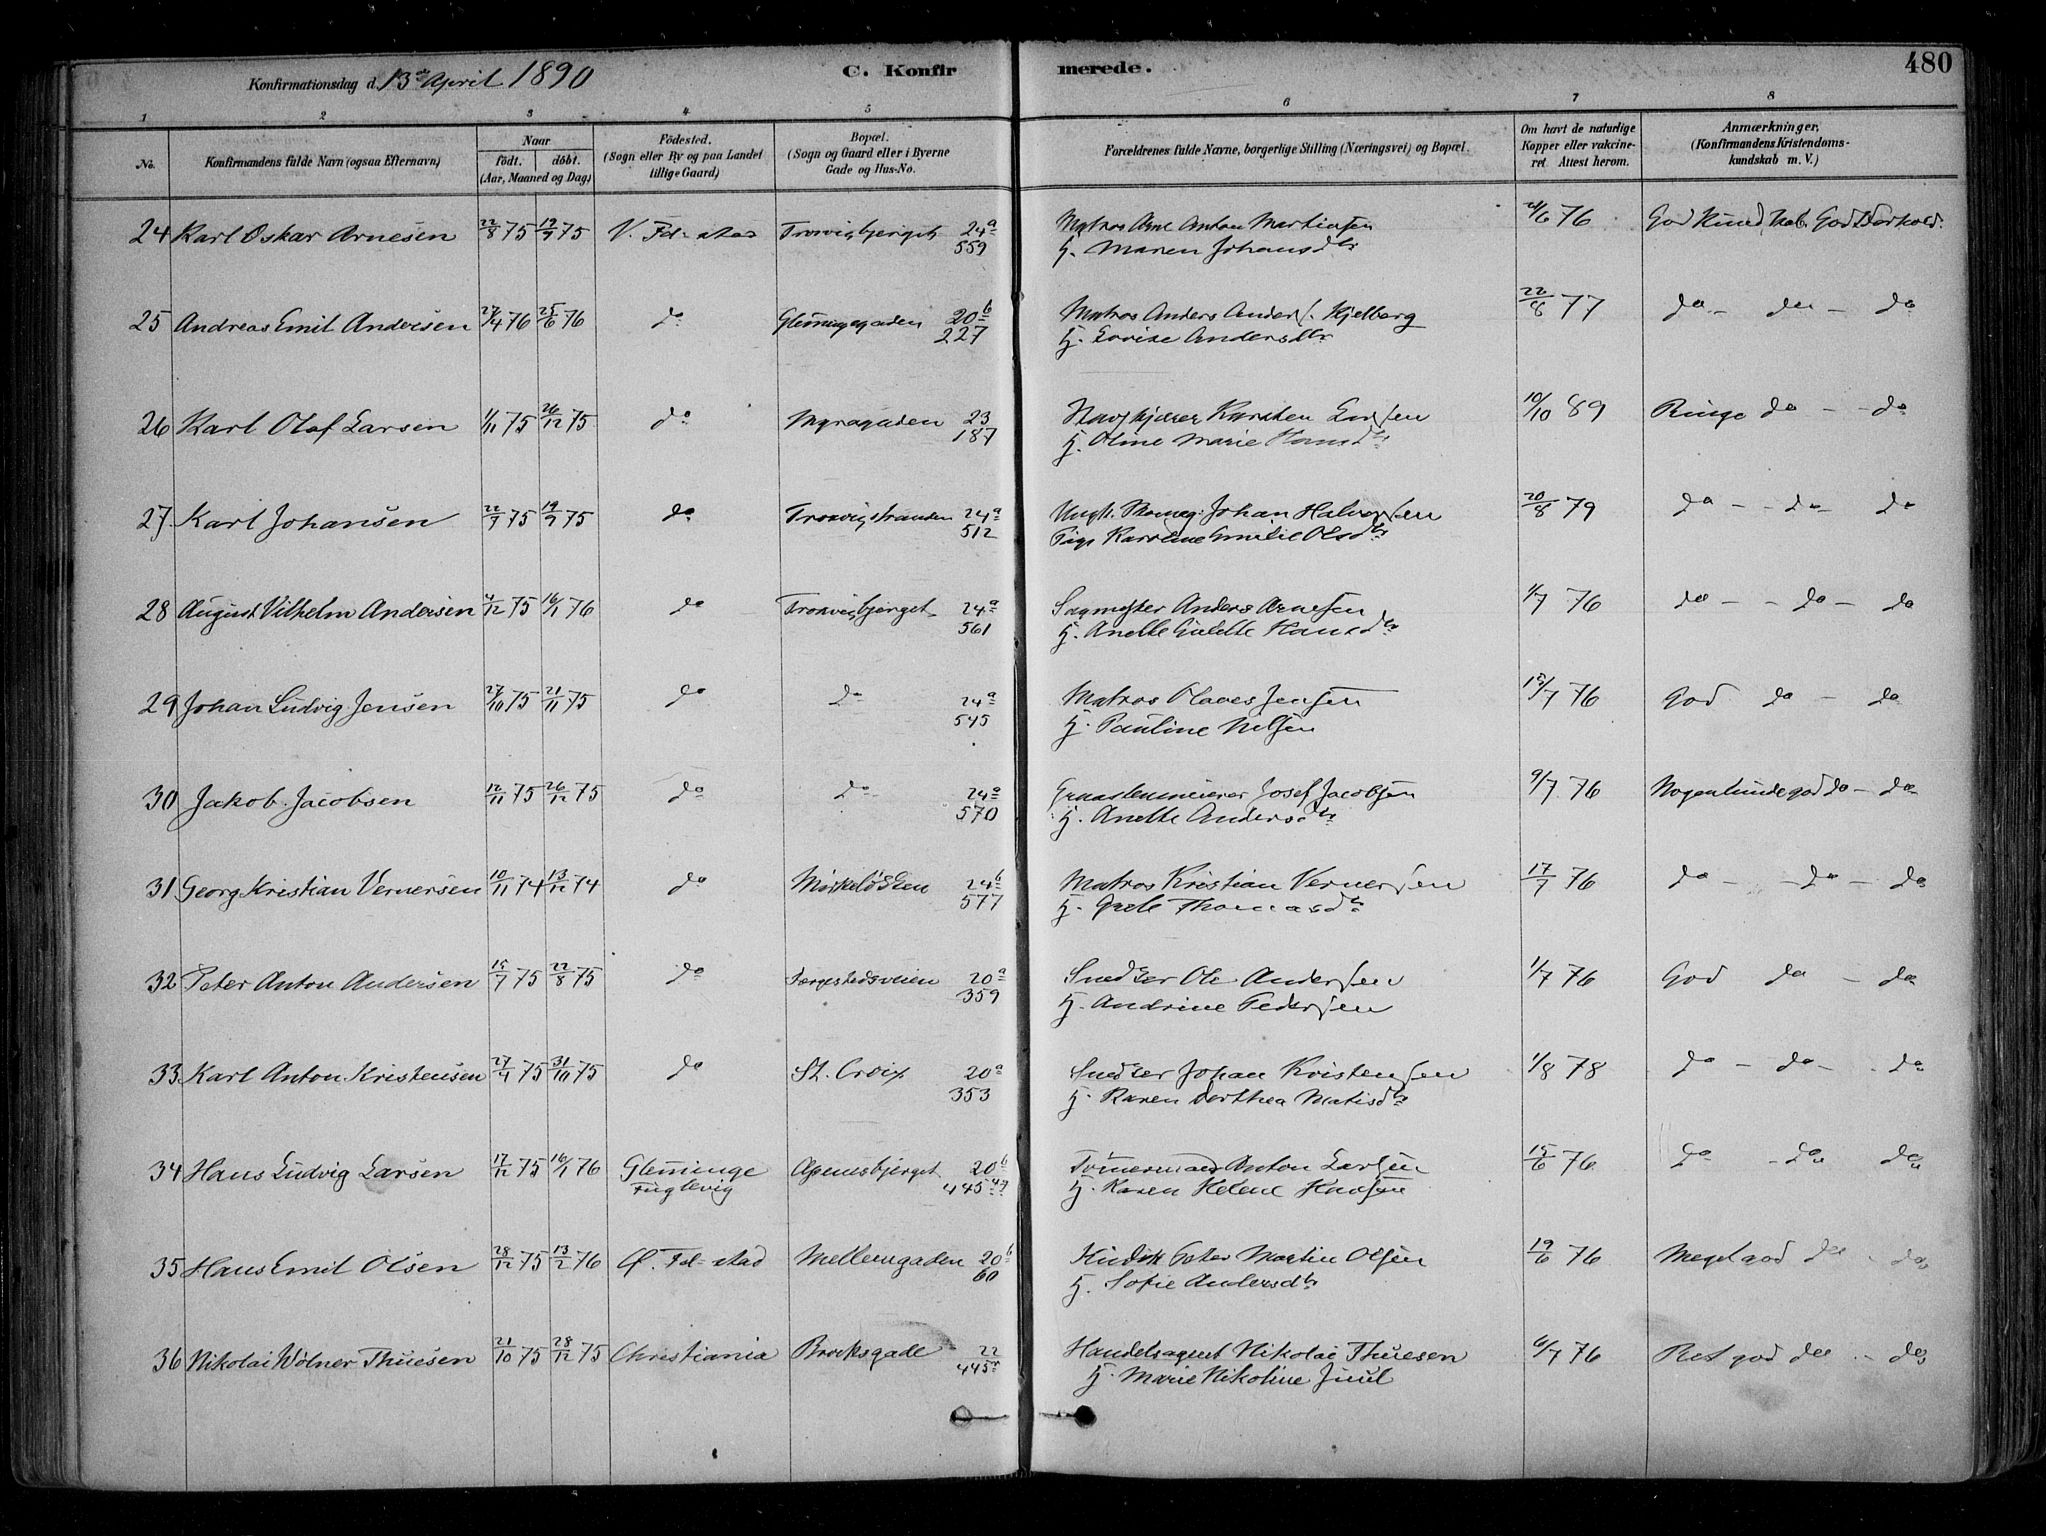 480
Konfirmationsdag d. 13de April 1890 C. Konfirmerede.
1 2 3 4 5 6 7 8
No. Konfirmandens fulde Navn (ogsaa Efternavn) Naar födt. döbt. (Aar, Maaned og Dag) Födested. (Sogn eller By og paa Landet tillige Gaard) Bopæl. (Sogn og Gaard eller i Byerne Gade og Hus-No. Forældrenes fulde Navne, borgerlige Stilling (Næringsvei) og Bopæl. Om havt de naturlige Kopper eller vakcineret. Attest herom. Anmærkninger. (Konfirmandens Kristendomskundskab m. V.)
24 Karl Oskar Arnesen 22/8 75 19/9 75 V. Fd-stad Trosvigbjerget 24a 559 Matros Arne Anton Martinsen 21/6 76 God Kundskab. God Forhold.
H. Maren Johansdtr
25 Andreas Emil Andersen 27/4 76 25/6 76 do Glemmegaden 20b 227 Matros Anders Anders. Kjelberg 22/8 77 do - do - do
H. Lovise Andersdtr
26 Karl Olaf Larsen 1/11 75 26/12 75 do Myragaden 23 187 Karsten Larsen 10/10 89 Ringe do - do
H. Oline Marie Hansdtr
27 Karl Johansen 22/7 75 19/9 75 do Trosvigstranden 24a 512 Johan Halvorsen 20/8 79 do - do - do
Pige Karoline Emilie Olsdtr
28 August Vilhelm Andersen 4/12 75 16/1 76 do Trosvigbjerget 24a 561 Sagmester Anders Arnesen 1/7 76 do - do - do
H. Anette Hansdtr
29 Johan Ludvig Jensen 27/10 75 21/11 75 do do 24a 545 Matros Olaves Jensen 12/7 76 God do - do
H. Pauline Nilsen
30 Jakob Jacobsen 12/11 75 26/12 75 do do 24a 570 Josef Jacobsen 9/7 76 Nogenlunde god do - do
H. Anette Andersdtr
31 Georg Kristian Vernersen 10/11 74 13/12 74 do 24b 577 Matros Kristian Vernersen 17/7 76 do - do - do
H. Grete Thomasdtr
32 Peter Anton Andersen 15/7 75 22/8 75 do Færgestedsveien 20a 359 Snedker Ole Andersen 1/7 76 God do - do
H. Andrine Pedersen
33 Karl Anton Kristensen 27/4 75 31/10 75 do St. Croix 20a 353 Snedker Johan Kristensen 1/8 78 do - do - do
H. Karen Dorthea Matisdtr
34 Hans Ludvig Larsen 17/12 75 16/1 76 Glemminge Fuglevig Apenesbjerget 20b 445 Tømermand Anton Larsen 15/6 76 do - do do
H. Karen Helene Hansen
35 Hans Emil Olsen 28/12 75 13/2 76 Ø. Fd-stad Mellemgaden 20b 60 Peter Martin Olsen 19/6 76 Meget god do - do
H. Sofie Andersdtr
36 Nikolai Wölner Thuesen 21/10 75 28/12 75 Christiania Brocksgade 22 445a Handelsagent Nikolai Thuesen 6/7 76 Ret god do - do
H. Marie Nikoline Juul